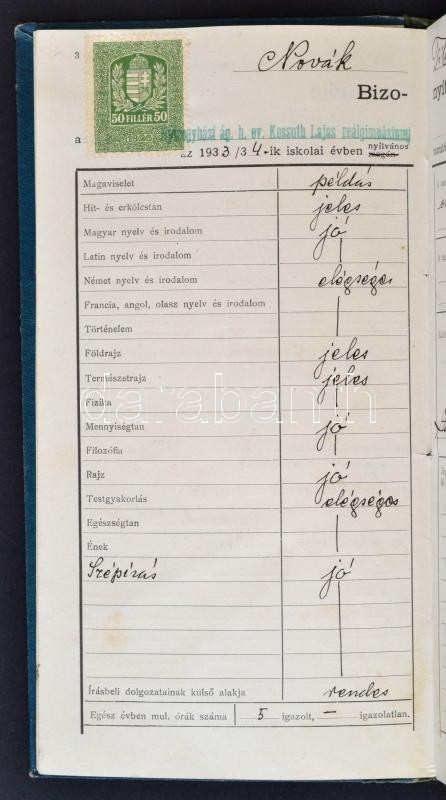 3
Novák
50 FILLÉR 50
Bizo-
nyi
a
ág. h. ev. Kossuth Lajos reálgimnázium
az 1933/34-ik iskolai évben nyilvános
magán
Magaviselet példás
Hit- és erkölcstan jeles
Magyar nyelv és irodalom jó
Latin nyelv és irodalom
Német nyelv és irodalom elégséges
Francia, angol, olasz nyelv és irodalom
Történelem
Földrajz jeles
Természetrajz jeles
Fizika
Mennyiségtan jó
Filozófia
Rajz jó
Testgyakorlás elégséges
Egészségtan
Ének
Szépírás jó
Írásbeli dolgozatainak külső alakja rendes
Egész évben mul. órák száma 5 igazolt, — igazolatlan.
darabanth